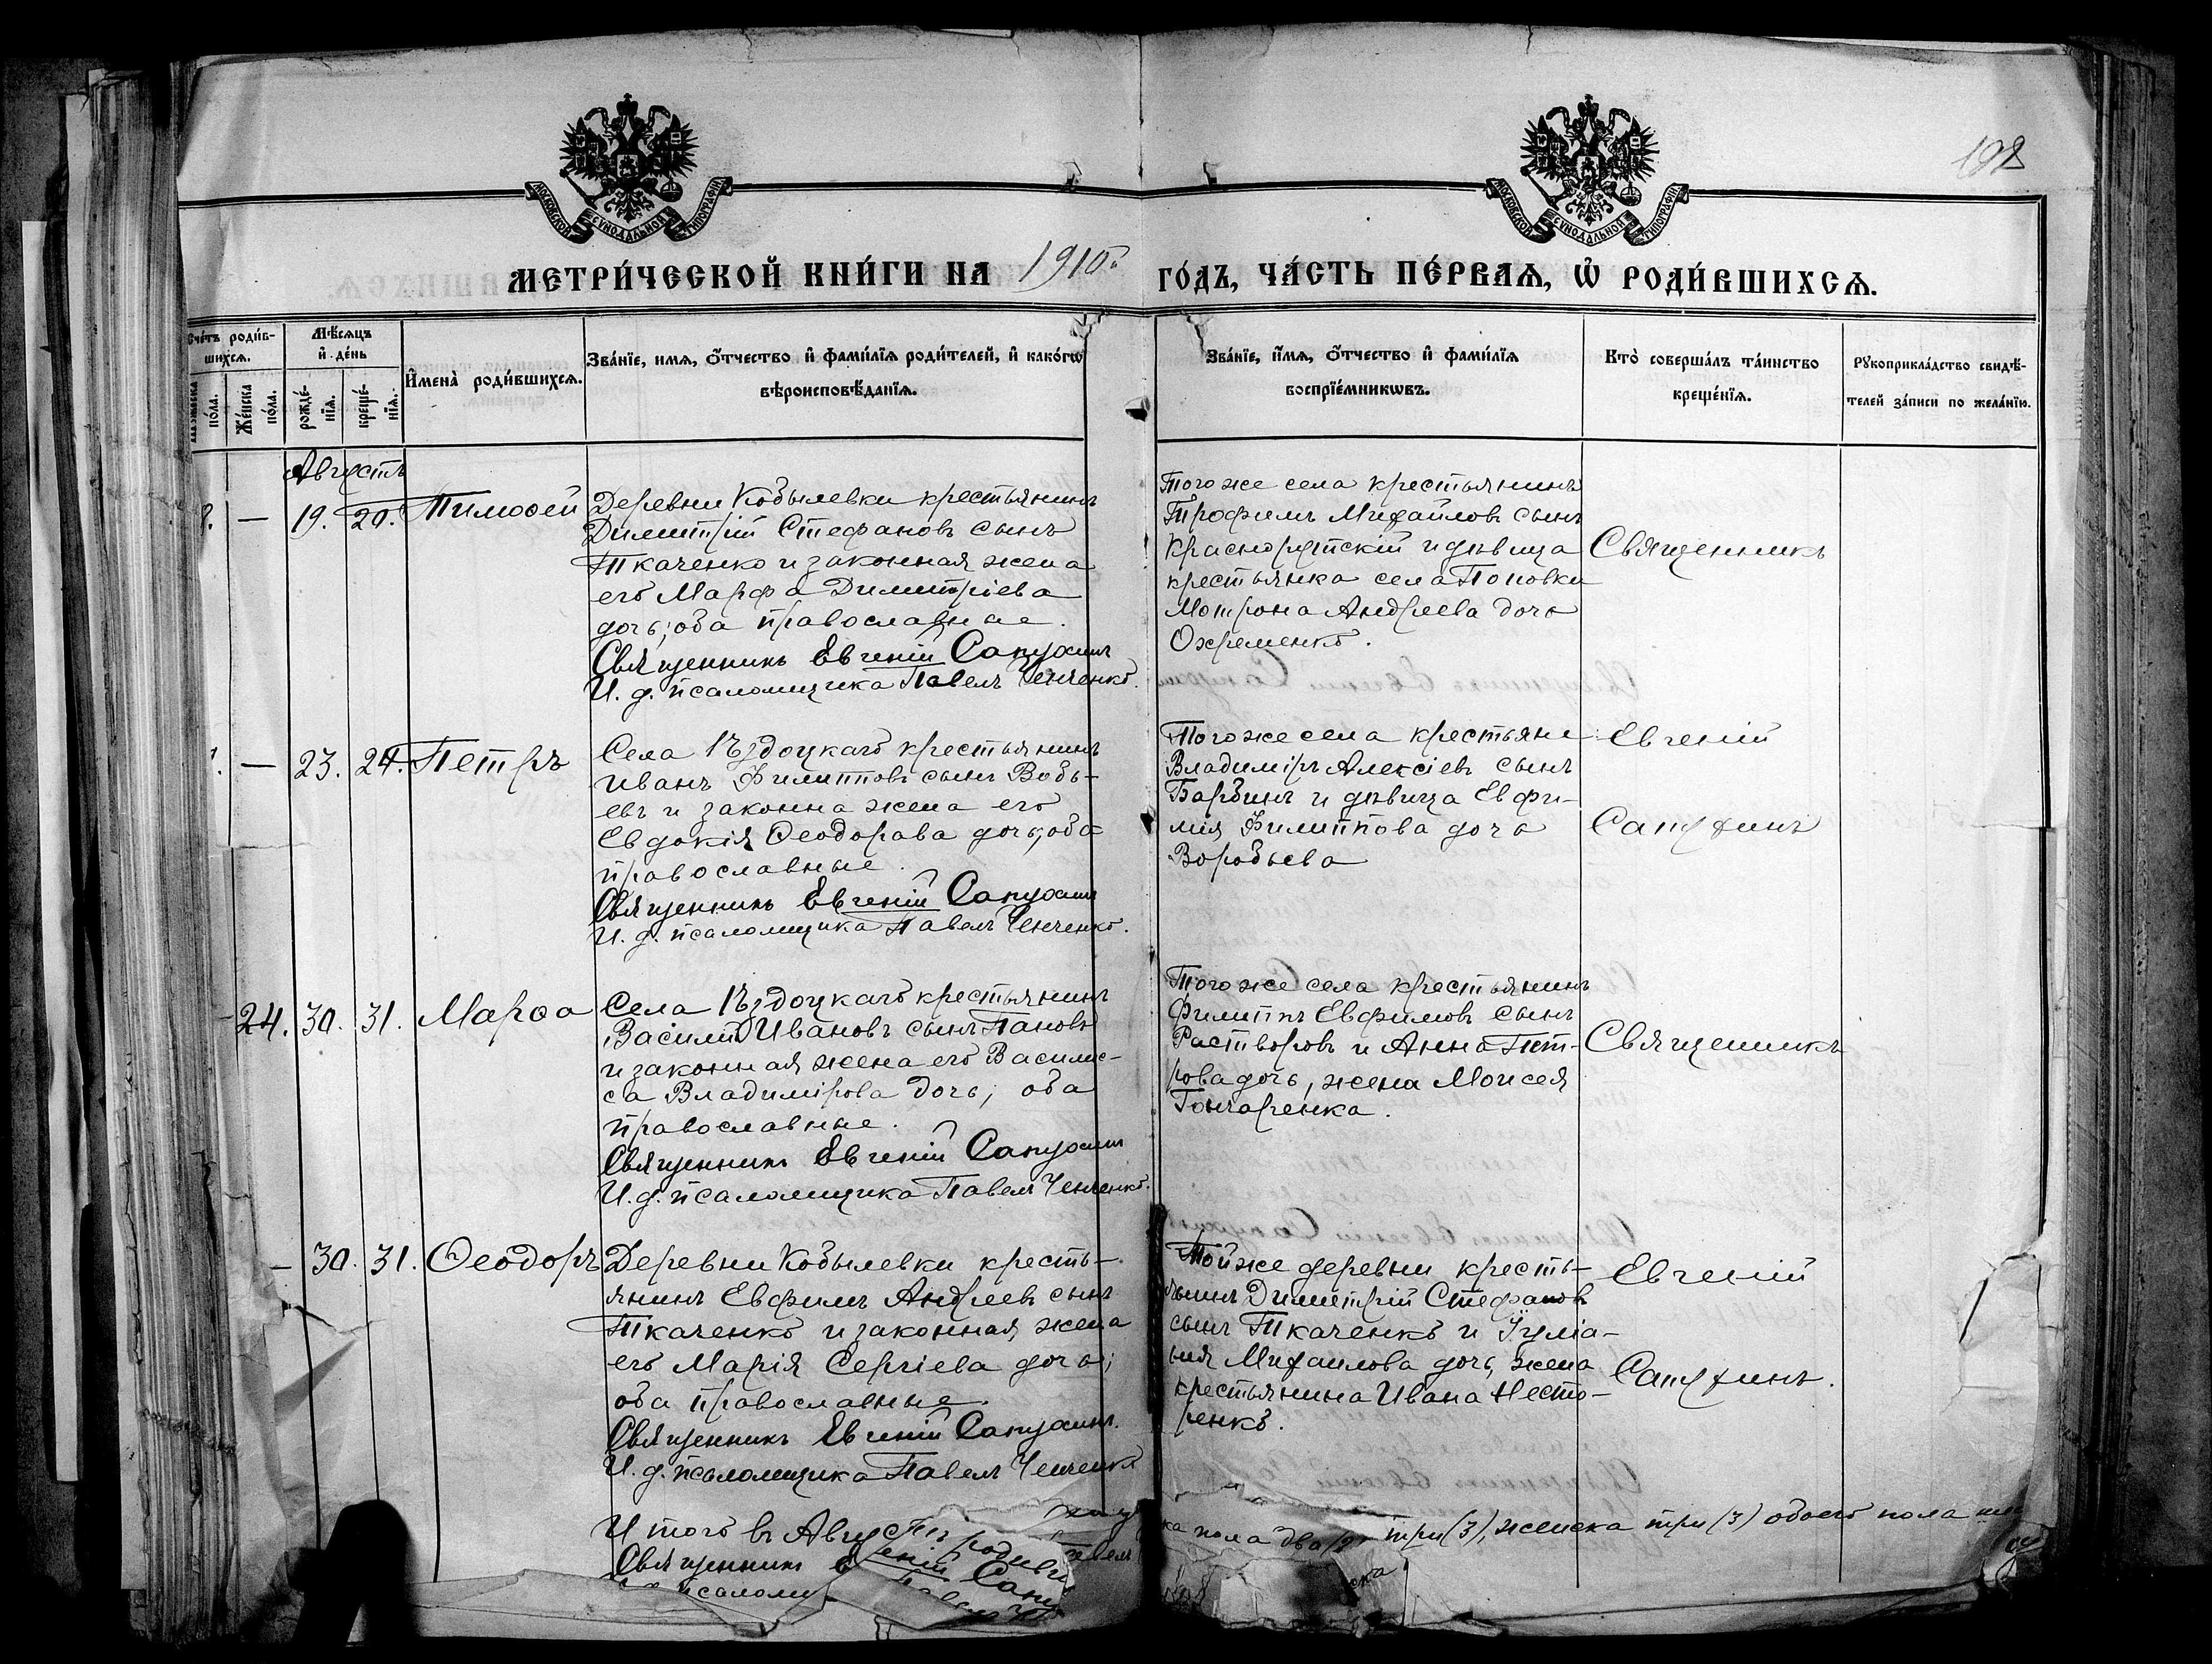 МОСКОВСКОЙ СѴНОДАЛЬНОЙ ТИПОГРАФІИ
МОСКОВСКОЙ СѴНОДАЛЬНОЙ ТИПОГРАФІИ
192
МЕТРИ́ЧЕСКОЙ КНИ́ГИ НА 1910й
ГО́ДЪ, ЧА́СТЬ ПЕ́РВАѦ, Ѽ РОДИ́ВШИХСѦ.
Сче́тъ роди́в-
шихсѧ.
Мѣ́сѧцъ
и҆ де́нь
И҆мена̀ роди́вшихсѧ.
Зва́нїе, имѧ, о҆́тчество и҆ фами́лїѧ роди́телей, и҆ како́гѡ
вѣроисповѣ́данїѧ.
по́ла.
Же́нска
по́ла.
рожде́-
нїѧ.
креще́-
нїѧ.
Зва́нїе, и҆́мѧ, о҆́тчество и҆ фами́лїѧ
воспрїе́мникѡвъ.
Кто̀ соверша́лъ та́инство
креще́нїѧ.
Рꙋкоприкла́дство свидѣ́-
телей за́писи по жела́нїю.
Августъ
— 19. 20. Тимоѳей
Деревни Кобылевки крестьянинъ
Димитрій Стефановъ сынъ
Ткаченко и законная жена
его Марфа Димитріева
дочь; оба православные.
Священникъ Евгеній Сапухинъ
И. д. псаломщика Павелъ Ченченко.
Того же села крестьянинъ
Трофимъ Михайловъ сынъ
и дѣвица
крестьянка села Поповки
Мотрона Андреева дочь
Охременко.
Священникъ
— 23. 24. Петръ
Села Ѣздоцкаго крестьянинъ
Иванъ Филипповъ сынъ Вобь-
евъ и законна жена его
Евдокія Ѳеодорава дочь; оба
православные.
Священникъ Евгеній Сапухинъ
И. д. псаломщика Павелъ Ченченко.
Того же села крестьяни
Владиміръ Алексіевъ сынъ
Барбинъ и дѣвица Евфи-
мія Филиппова дочь
Воробьева
Евгеній
Сапухинъ
24. 30. 31. Марѳа
Села Ѣздоцкаго крестьянинъ
Василій Ивановъ сынъ Пановъ
и законная жена его Васили-
са Владимірова дочь; оба
православные.
Священникъ Евгеній Сапухинъ
И. д. псаломщика Павелъ Ченченко.
Того же села крестьянинъ
Филиппъ Евфимовъ сынъ
Растворовъ и Анна Пет-
рова дочь, жена Моисея
Гончаренка.
Священникъ
— 30. 31. Ѳеодоръ
Деревни Кобылевки кресть-
янинъ Евфимъ Андреевъ сынъ
Ткаченко и законная жена
его Марія Сергіева дочь;
оба православные.
Священникъ Евгеній Сапухинъ.
И. д. псаломщика Павелъ Ченченко
Той же деревни кресть-
янинъ Димитрій Стефановъ
сынъ Ткаченко и Іуліа-
нія Михаилова дочь, жена
крестьянина Ивана Несто-
ренко.
Евгеній
Сапухинъ.
Итого въ Августѣ
пола два (2) три (3), женска три (3) обоего пола
Священникъ